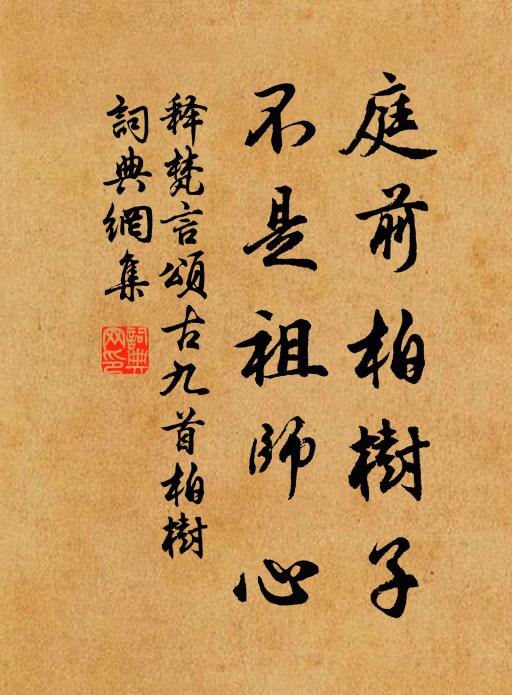 庭前柏樹子
不是祖師心
释梵言頌古九首柏樹
詞典網集
詞典網印